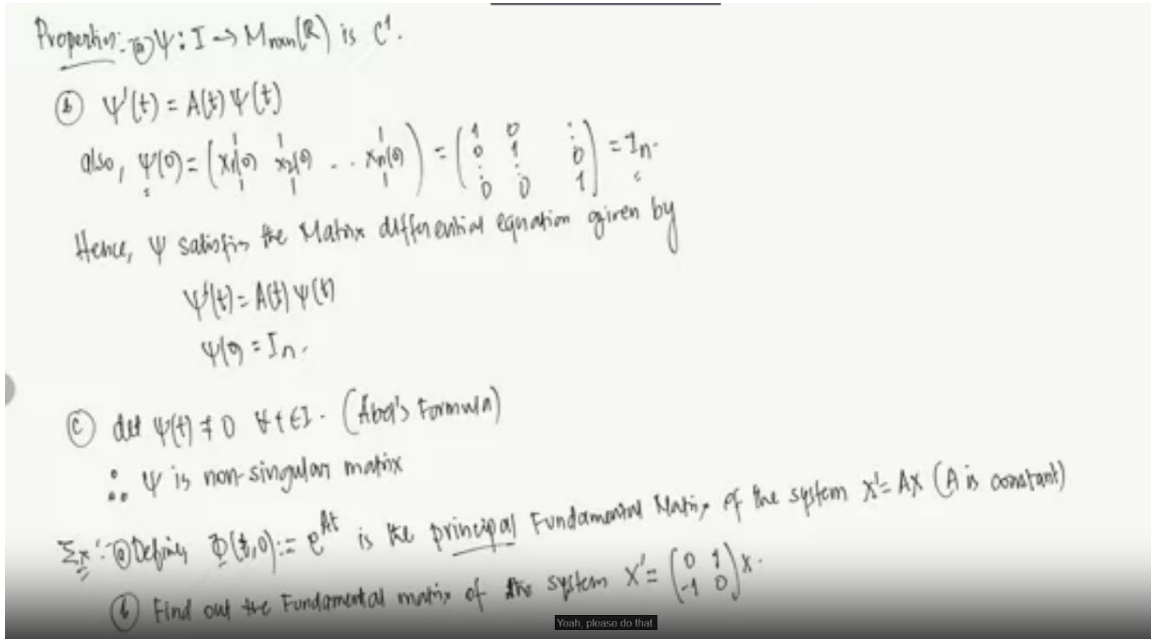 Properties: ⓐ Ψ : I → Mnxn(ℝ) is C¹.
ⓑ Ψ'(t) = A(t) Ψ(t)
also, Ψ(0) = (x₁(0) x₂(0) . . xₙ(0)) = (1 0 : 0 1 0 : : 0 0 1) = Iₙ.
Hence, Ψ satisfies the Matrix differential equation given by
Ψ'(t) = A(t) Ψ(t)
Ψ(0) = Iₙ.
ⓒ det Ψ(t) ≠ 0 ∀ t ∈ I. (Abel's Formula)
∴ Ψ is non-singular matrix
Ex: ⓐ Define, Φ(t,0) := e^{At} is the principal Fundamental Matrix of the system x' = Ax (A is constant)
ⓑ Find out the Fundamental matrix of the system x' = (0 1 -1 0) x.
Yeah, please do that.